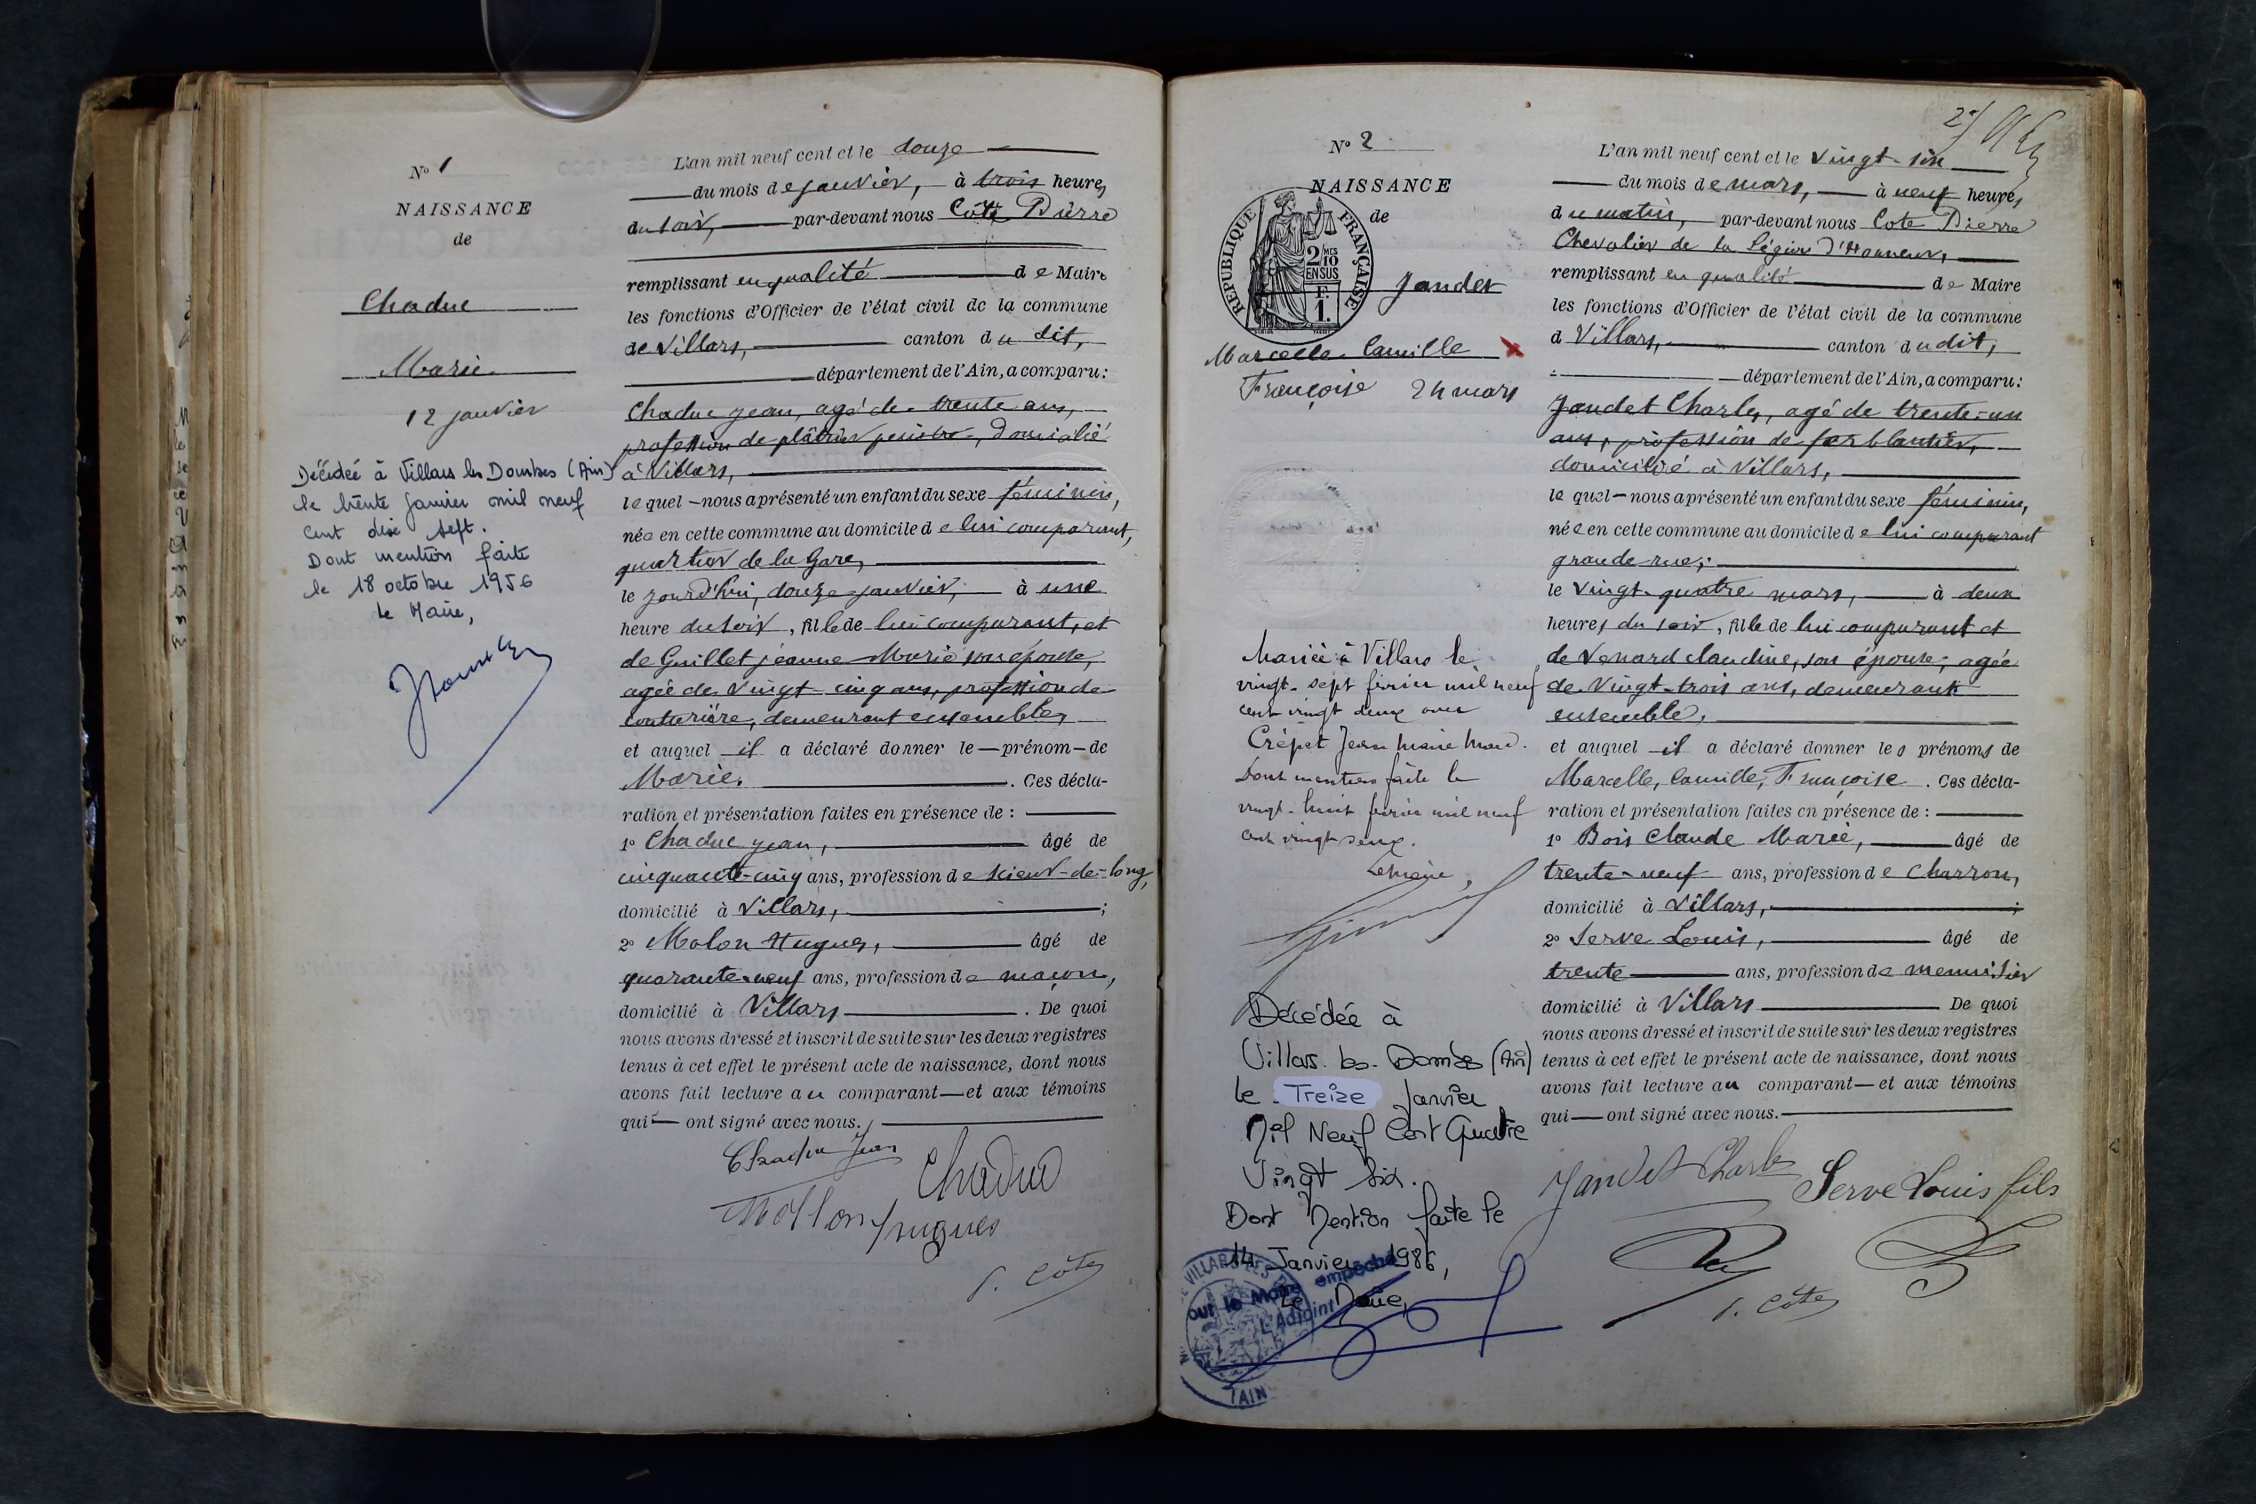 N° 1
NAISSANCE
de
Chaduc
Marie
12 janvier
Décédée à Villars les Dombes (Ain)
le trente janvier mil neuf
cent dix sept.
Dont mention faite
le 18 octobre 1956
Le Maire,
L'an mil neuf cent et le douze
du mois de janvier, à trois heures
du soir, par-devant nous Côte Pierre
remplissant en qualité de Maire
les fonctions d'Officier de l'état civil de la commune
de Villars, canton du dit,
département de l'Ain, a comparu :
Chaduc Jean, agé de trente ans,
profession de plâtrier peintre, domicilié
à Villars,
lequel nous a présenté un enfant du sexe féminin,
née en cette commune au domicile de lui comparant,
quartier de la Gare,
le jourd'hui, douze janvier, à une
heure du soir, fille de lui comparant, et
de Guillet Jeanne Marie son épouse,
agée de vingt cinq ans, profession de
couturière, demeurant ensemble,
et auquel il a déclaré donner le prénom de
Marie. Ces décla-
ration et présentation faites en présence de :
1° Chaduc Jean, âgé de
cinquante-cinq ans, profession de scieur-de-long,
domicilié à Villars, ;
2° Molon Hugues, âgé de
quarante-neuf ans, profession de maçon,
domicilié à Villars . De quoi
nous avons dressé et inscrit de suite sur les deux registres
tenus à cet effet le présent acte de naissance, dont nous
avons fait lecture au comparant et aux témoins
qui ont signé avec nous.
Chaduc Jean
Chaduc
Mollon hugues
P. Côte
2e
N° 2
NAISSANCE
de
REPUBLIQUE FRANÇAISE
2/MES
10
EN SUS
F.
1.
Jandet
Marcelle Camille
Françoise 24 mars
Mariée à Villars le
vingt-sept février mil neuf
cent vingt deux avec
Crépet Jean Marie
Dont mention faite le
vingt-huit février mil neuf
cent vingt deux.
Le Maire,
Décédée à
Villars-les-Dombes (Ain)
le Treize Janvier
Mil Neuf Cent Quatre
Vingt Six.
Dont Mention faite le
14 Janvier 1986,
Le Maire,
VILLARS LES
Pour le Maire empêché
L'Adjoint
(AIN)
L'an mil neuf cent et le vingt-six
du mois de mars, à neuf heures
du matin, par-devant nous Cote Pierre
Chevalier de la Légion d'Honneur,
remplissant en qualité de Maire
les fonctions d'Officier de l'état civil de la commune
d Villars, canton dudit,
département de l'Ain, a comparu :
Jandet Charles, agé de trente-un
ans, profession de ferblantier,
domicilié à Villars,
lequel nous a présenté un enfant du sexe féminin,
née en cette commune au domicile de lui comparant
grande rue;
le vingt-quatre mars, à deux
heures du soir, fille de lui comparant et
de Venard Claudine, son épouse, agée
de vingt-trois ans, demeurant
ensemble,
et auquel il a déclaré donner les prénoms de
Marcelle, Camille, Françoise . Ces décla-
ration et présentation faites en présence de :
1° Bois Claude Marie, âgé de
trente-neuf ans, profession de charron,
domicilié à Villars, ;
2° Serve Louis, âgé de
trente ans, profession de menuisier
domicilié à Villars De quoi
nous avons dressé et inscrit de suite sur les deux registres
tenus à cet effet le présent acte de naissance, dont nous
avons fait lecture au comparant et aux témoins
qui ont signé avec nous.
Jandet Charles
Serve Louis fils
P. Côte